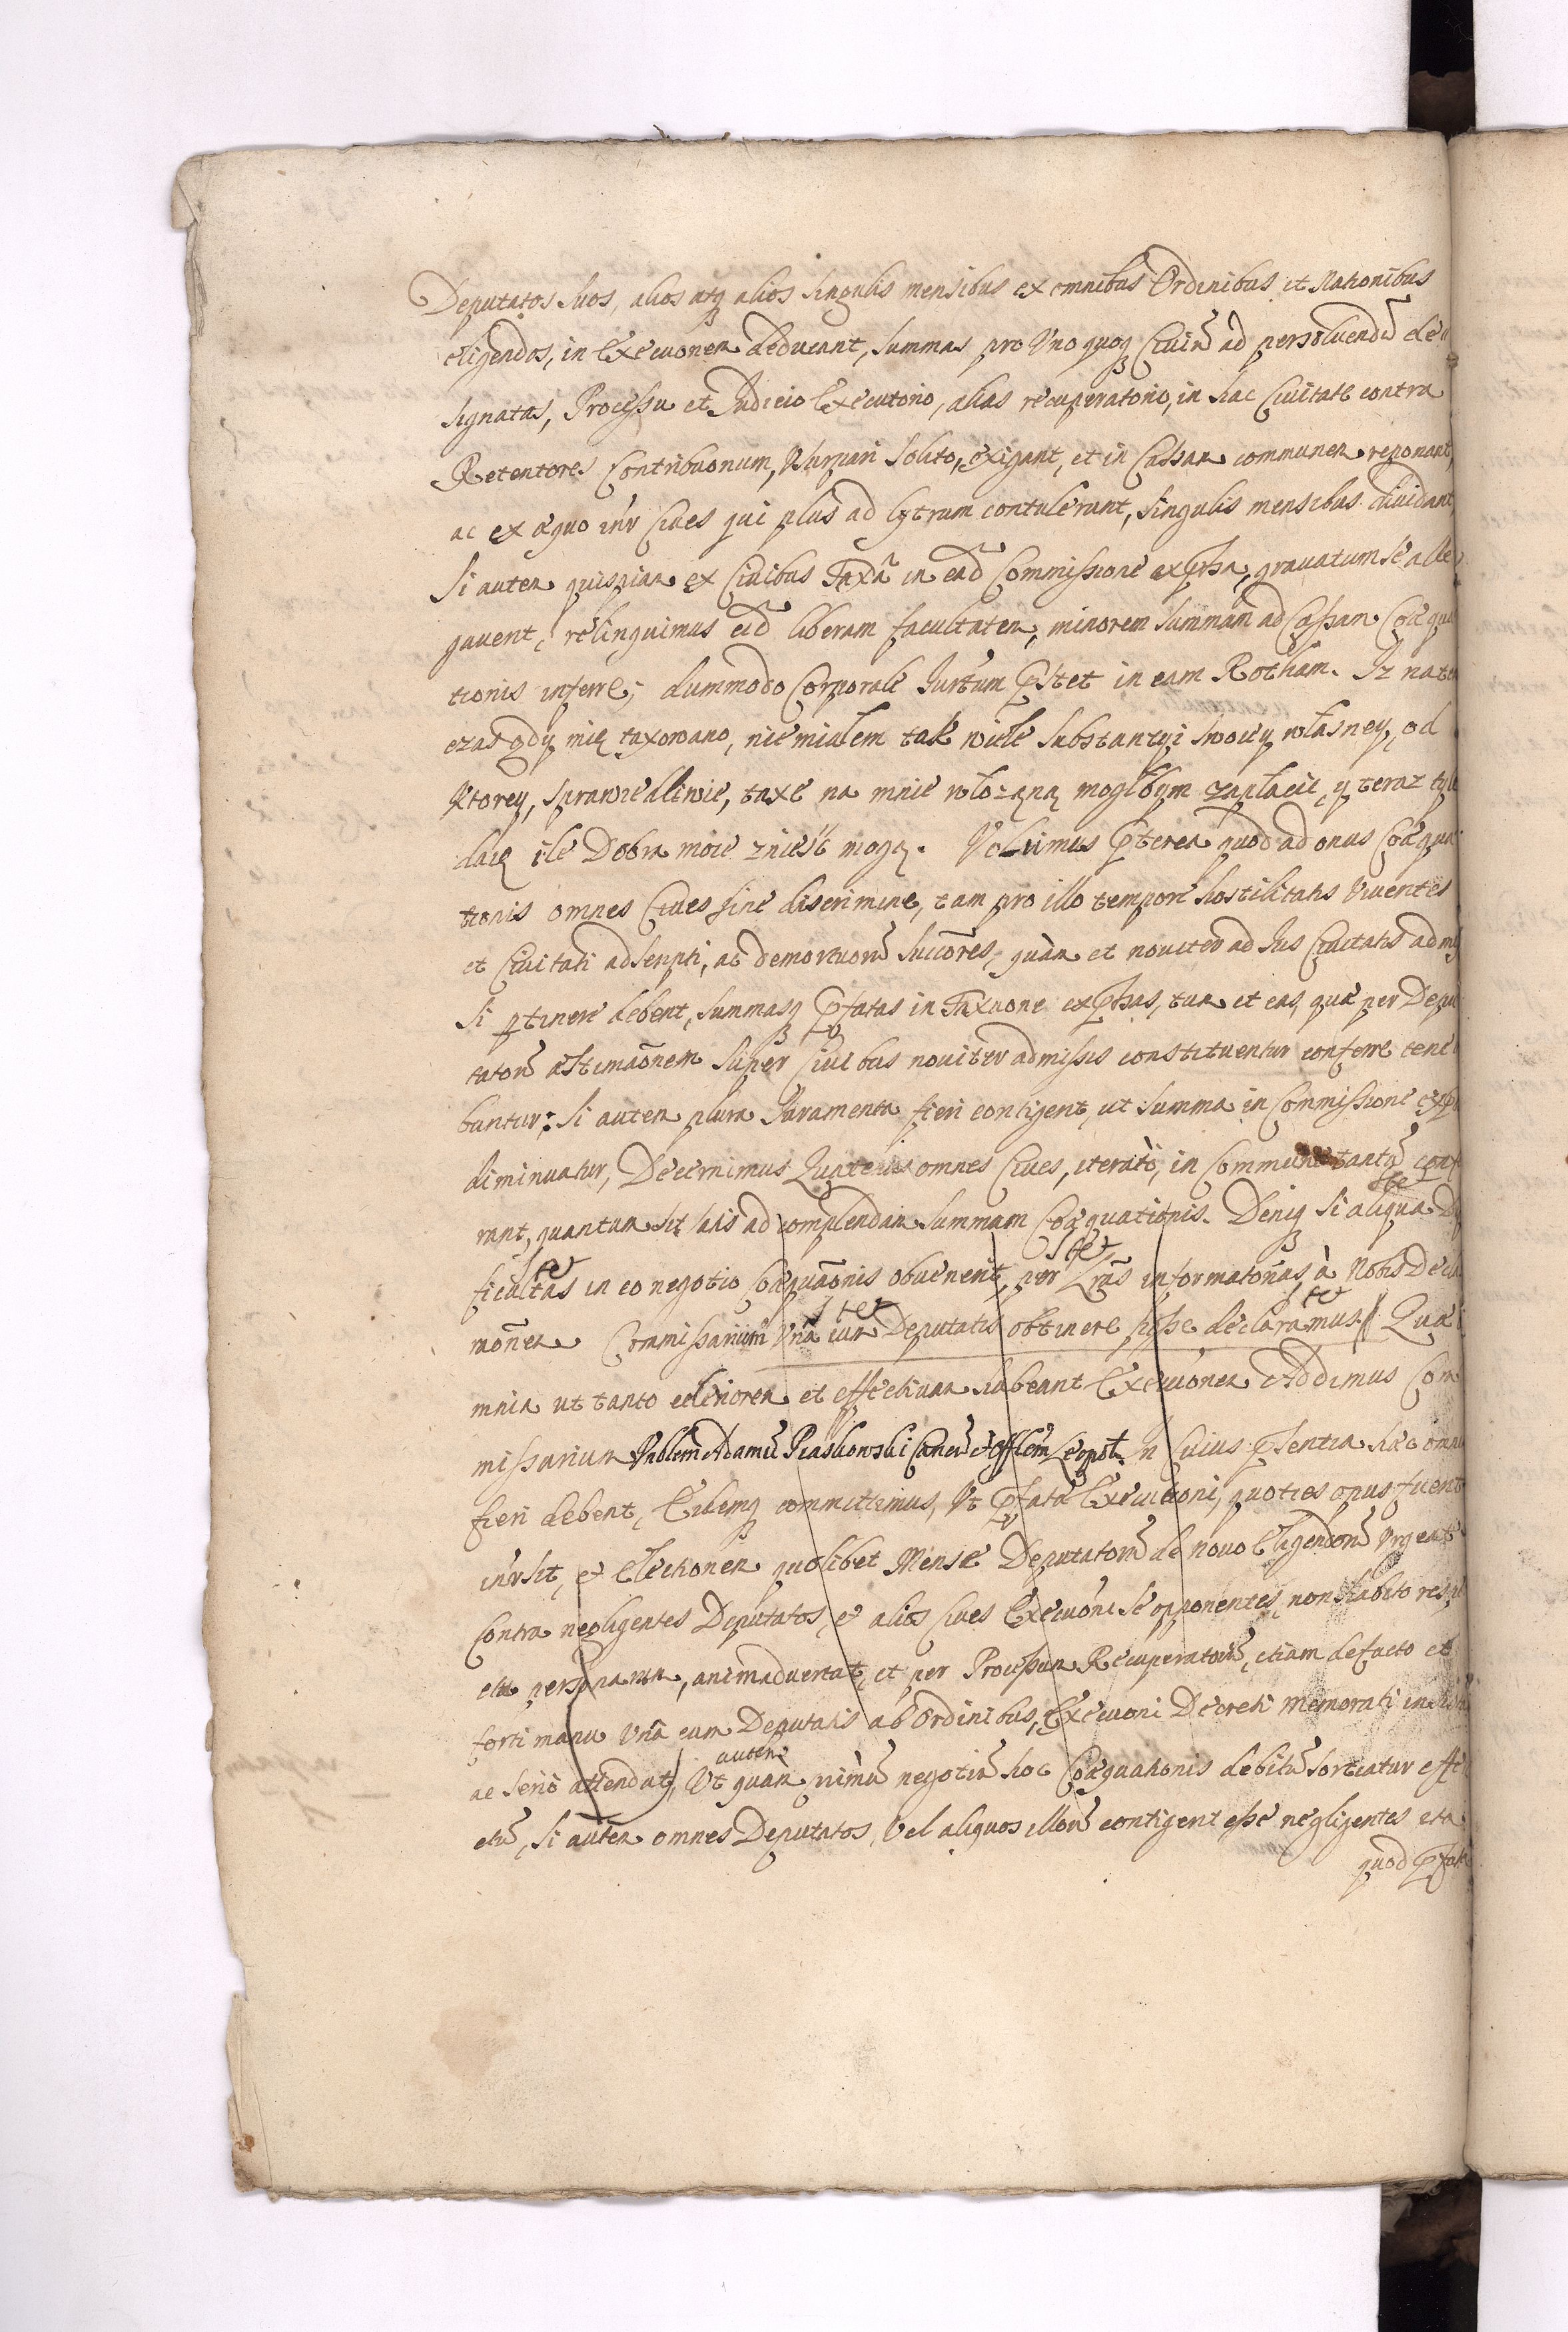 Deputatos suos, alios atq alios singulis mensibus ex omnibus Ordinibus et Nationibus
eligendos, in Execuonem deducant, summas pro Uno quoq Civiũ ad persoluendũ de„
signatas, Processu et Judicio Executorio, alias recuperatorio, in hac Civitate contra
Retentores Contribuonum, Usurpari solito, exigant, et in Cassam communem reponant,
ac ex æquo inr Cives qui plus ad lytrum contulerunt, singulis mensibus dividant
Si autem quispiam ex Civibus Taxã in eãd Commissione exp̃ssa, gravatum se alle
gaverit, relinquimus eid liberam facultatem, minorem summam ad Cassam Coæqua
tionis inferre; dummodo Corporale Jurtum p̃stet in eam Rotham. Iz na ten
czas gdy mię taxowano, niemiałem tak wiele substantyi swoiey własney, od
ktorey, sprawiedliwie, taxę na mnie włożąną mogłbym zapłacic, y teraz tyle
daię ile Dobra moie znieść mogą. Volumus p̃terea quod ad onus Coæqua
tionis omnes Cives sine discrimine, tam pro illo tempore hostilitatis Viventes
et Civitati adscripti, ac demortuorũ Succõres, quàm et noviter ad Jus Civitatis admis
si ptinere debent, summasq p̃fatas in Taxuone exp̃ssas, tum et eas, quæ per Depu
tatorũ æstimaõnem super Civibus noviter admissis constituentur conferre tene
bantur: Si autem plura Juramenta fieri contigerit, ut summa in Commissione exp̃
diminuatur, Decernimus Quatenus omnes Cives, iteratò, in Commune tantũ confe
rant, quantum sit satis ad complendam summam Coæquationis. Deniq si aliqua Dif
ficultas in eo negotio Coæquaõnis obvenerit, per Lrãs informatorias à Nobis Decla
maõnem Commissarium Unà cum Deputatis obtinere posse declaramus. Quæ
mnia ut tanto celeriorem et effectivam habeant Execuonem Addimus Com
missarium Nobilem Adamũ Piaskowski Leopol. in Cuius p̃sentia hæc omnia
fieri debent, Eidemq committimus, Ut p̃fatæ Executioni, quoties opus fuerit
inrsit, et Electionem quolibet Mense Deputatorũ de novo Eligendorũ Urgeat
Contra negligentes Deputatos, et alios Cives Execuoni se opponentes, non habito respe
ctu personarum, animadvertat, et per Processum Recuperatoriũ, etiam de facto et
forti manu Unà cum Deputatis ab Ordinibus, Execuoni Decreti Memorati
ac seriò attendat, Ut autem quam primũ negotiũ hoc Coæquationis debitũ sortiatur effe
ctũ, si autem omnes Deputatos, Vel aliquos illorũ contigerit esse negligentes eta
quod p̃fat